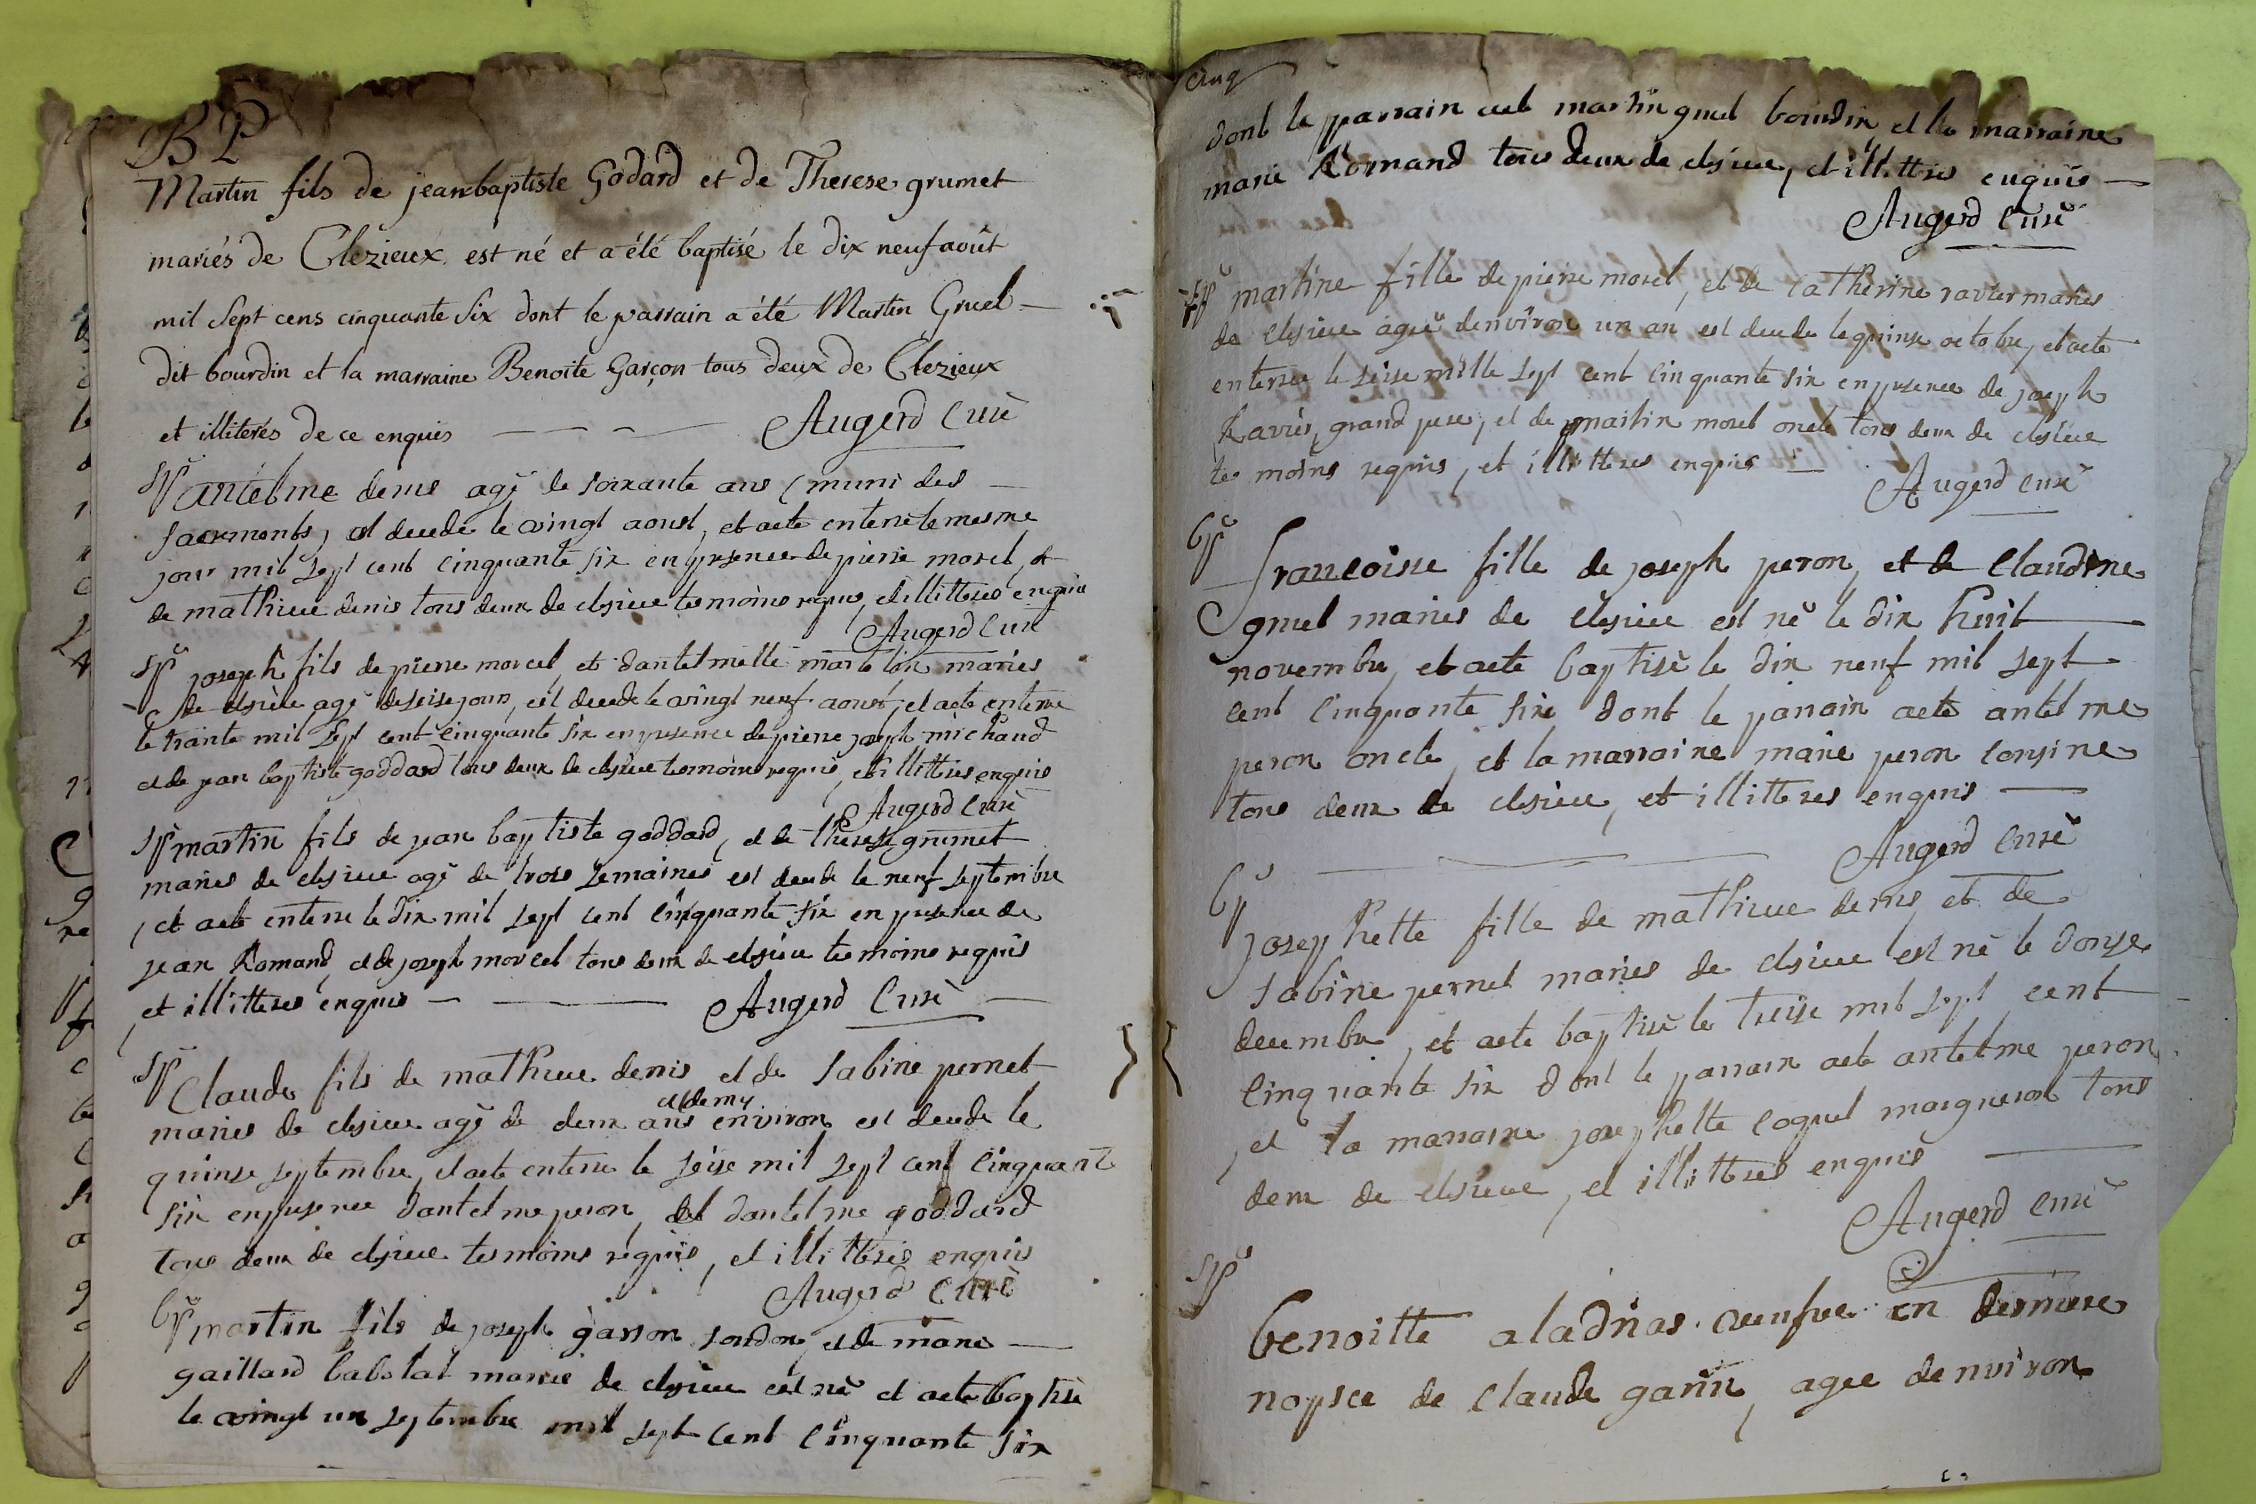 BP
Martin fils de jean baptiste Godard et de Therese grumet
mariés de Clezieux est né et a été baptisé le dix neuf avût
mil Sept cens cinquante Six dont le parrain a été Martin Gruel
dit bourdin et la marraine Benoite Garçon tous deux de Clezieux
et illiterés de ce enquis Augerd Curè
Sp antelme denis agé de soixante ans (muni des
sacrements, est decede le vingt aoust, et aete enterré le mesme
jour mil sept cent cinquante six en presence de pierre morel, et
de mathieu denis tous deux de clesieu tesmoins requis, et illitteres enquis
Augerd Curé
Sp joseph fils de pierre morcel, et dantelmette martelin maries
de clesieu agé de seise jours, est decede le vingt neuf aoust, et aete enterre
le trante mil sept cent cinquante six en presence de pierre joseph michaud
et de jean baptiste goddard tous deux de clesieu tesmoins requis, et illitteres enquis
Augerd Curè
Sp martin fils de jean baptiste goddard, et de therese grumet
maries de clesieu agé de trois semaines est decede le neuf septembre
, et aete enterre le dix mil sept cent cinquante six en presence de
jean Romand, et de joseph morcel tous deux de clesieu tesmoins requis
, et illitteres enquis Augerd Curè
Sp Claude fils de mathieu denis et de sabine pernet
maries de clesieu agé de deux ans et demy environ est decede le
quinse septembre, et aete enterre le seise mil sept cent cinquante
six en presence dantelme peron, et dantelme goddard
tous deux de clesieu tesmoins requis, et illitteres enquis
Augerd Curè
bp martin fils de joseph garson sordon, et de marie
gaillard babolat maries de clesieu est nè et aete baptisè
le vingt un septembre mil sept cent cinquante six
cinq
dont le parrain aete martin gruel bourdin et la marraine
marie Romand tous deux de clesieu, et illitteres enquis
Augerd Curè
Sp martine fille de pierre morel, et de catherine ravier maries
de clesieu agee denviron un an est decede le quinse octobre, et aete
enterree le seise mille sept cent cinquante six en presence de joseph
Ravier, grand pere, et de martin morel oncle tous deux de clesieu
tesmoins requis, et illitteres enquis
Augerd Curè
bp francoisse fille de joseph peron, et de Claudine
gruel maries de clesieu est nè le dix huit
novembre, et aete baptisè le dix neuf mil sept
cent cinquante six dont le parrain aete antelme
peron oncle, et la marraine marie peron consine
tous deux de clesieu, et illitteres enquis
Augerd Curè
bp josephette fille de mathieu denis, et de
sabine pernet maries de clesieu est nè le donze
decembre, et aete baptisè le treise mil sept cent
cinquante six dont le parrain aete antelme peron
, et la marraine josephette coquet marqueron tous
deux de clesieu, et illitteres enquis
Augerd Curè
Sp
benoitte aladnas veufve en derniere
nopsce de Claude garin, agee denviron